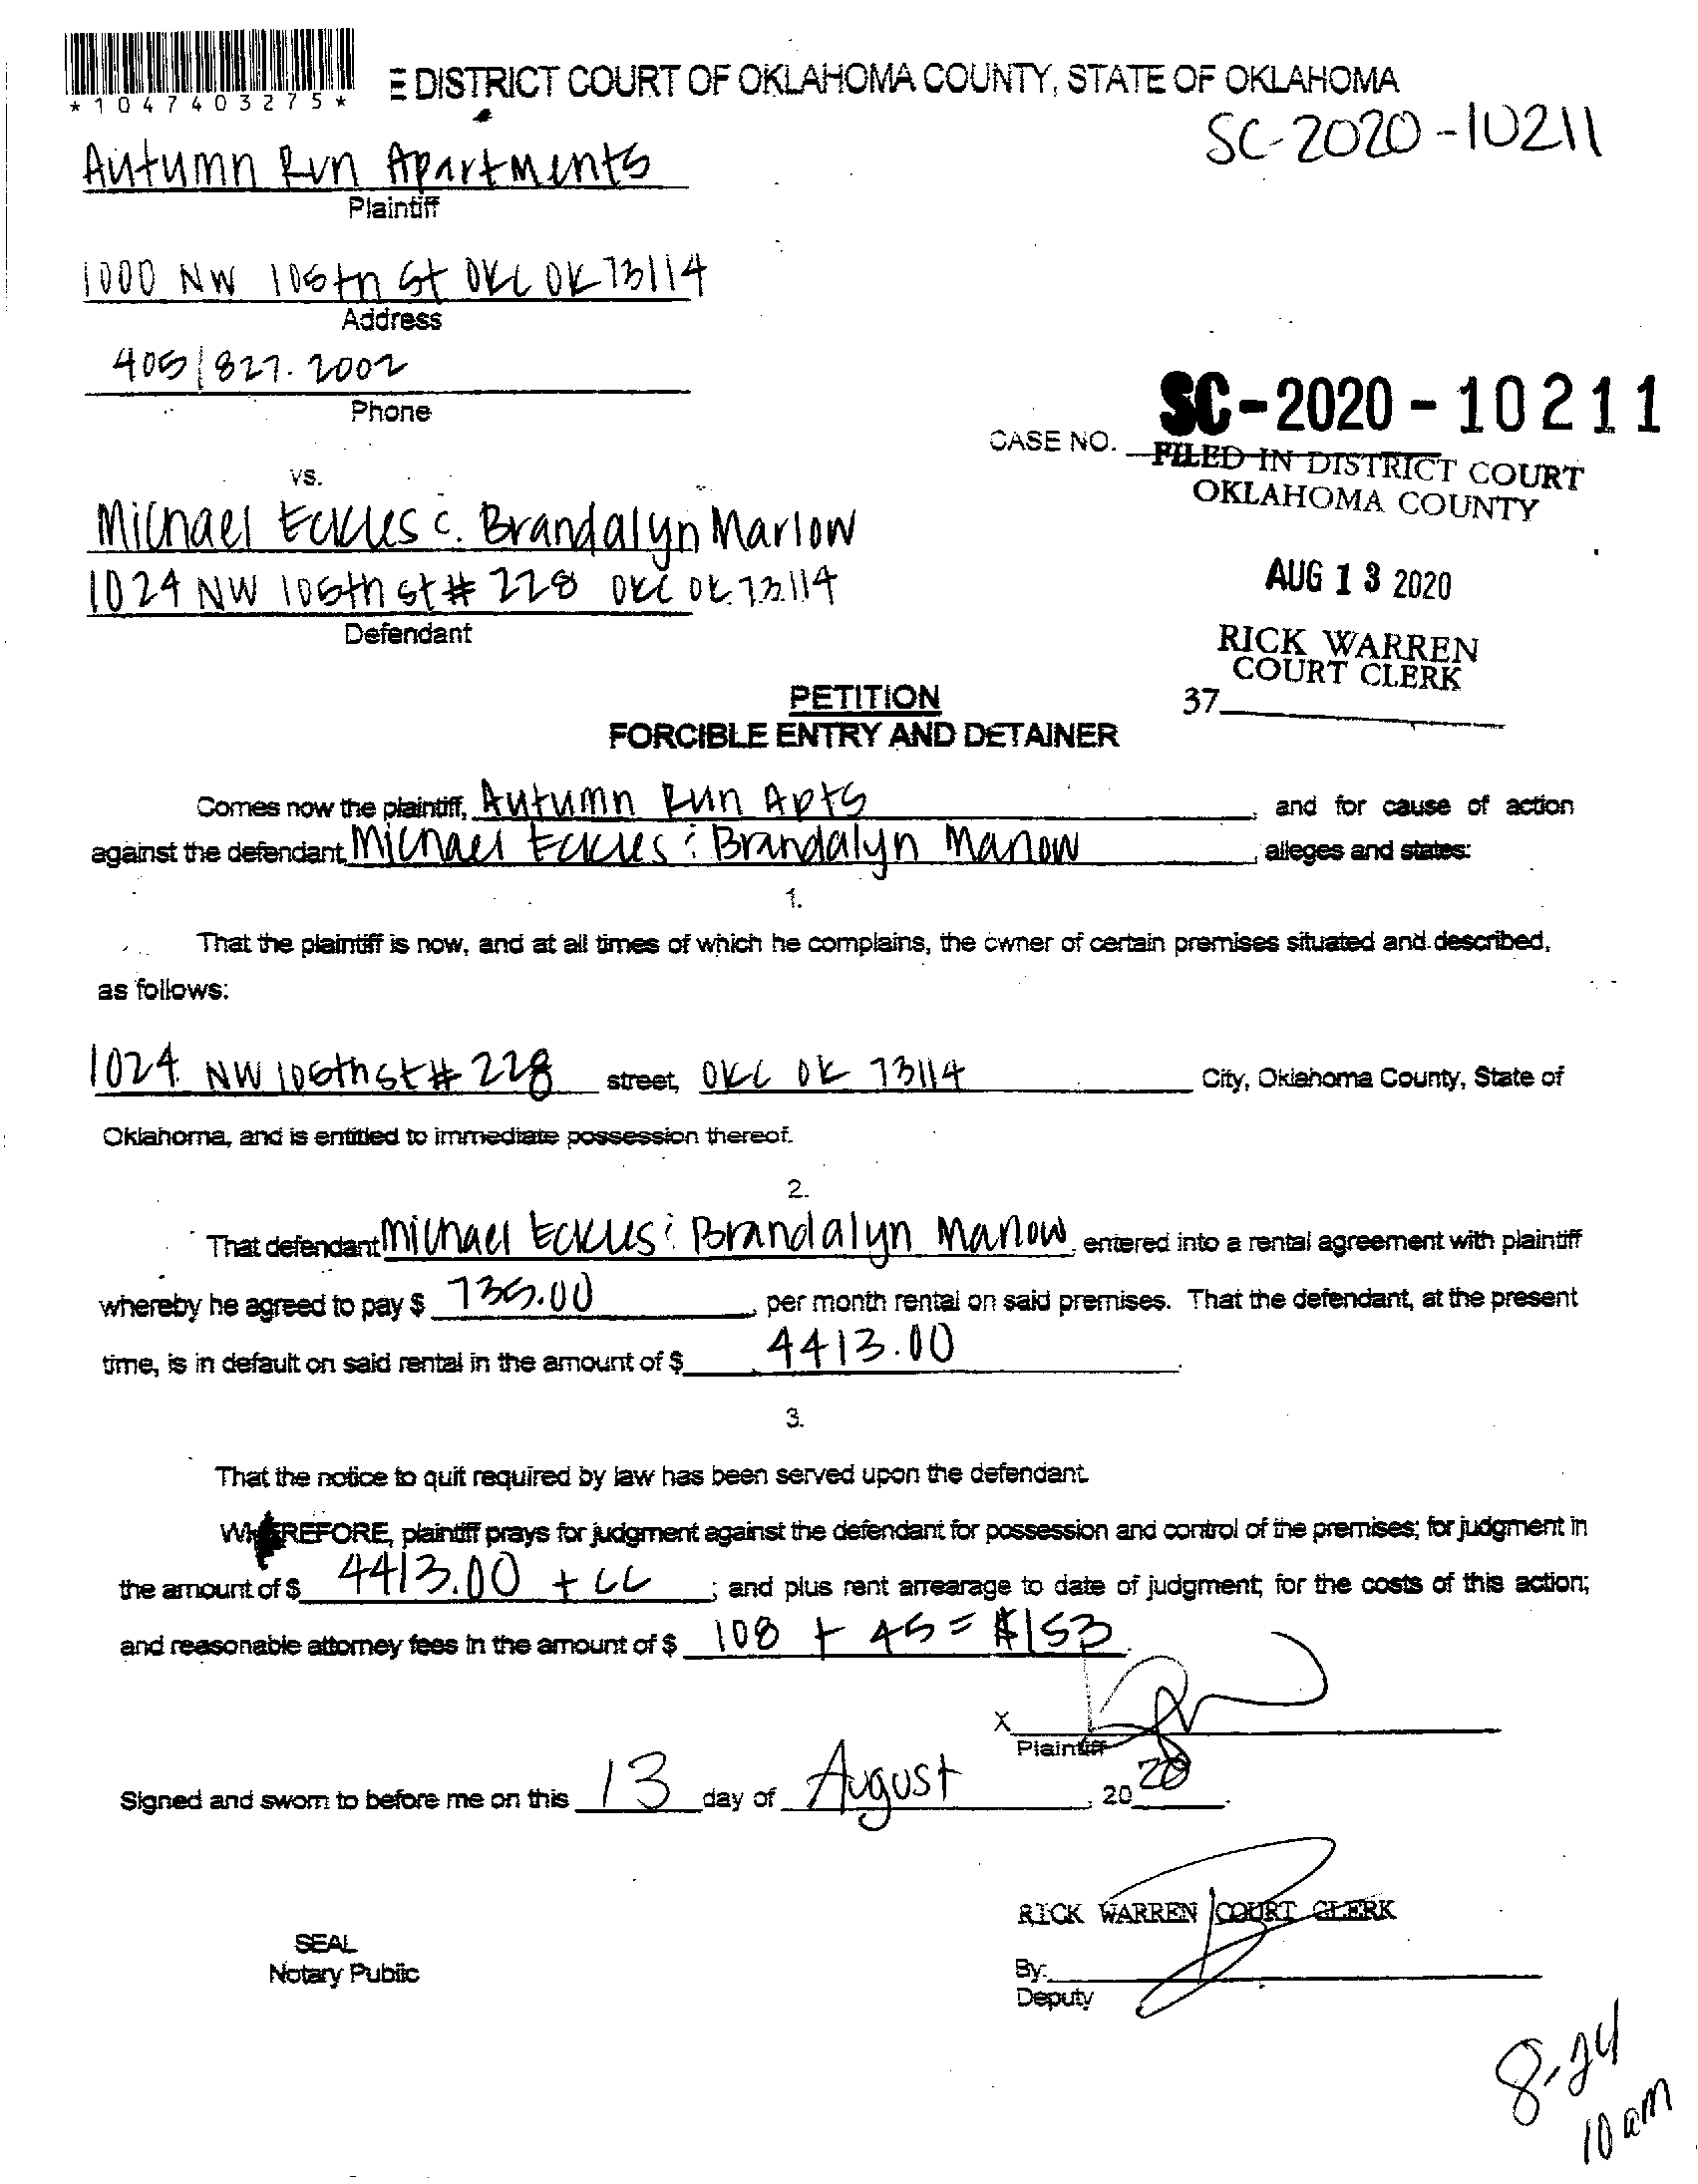 *1047403275*
E DISTRICT COURT OF OKLAHOMA COUNTY, STATE OF OKLAHOMA
SC-2020-10211
Autumn Run Apartments
Plaintiff
1000 NW 105th St OKC OK 73114
Address
405/827.2002
Phone
SC-2020-10211
CASE NO.
FILED IN DISTRICT COURT
OKLAHOMA COUNTY
vs.
Michael Eckles & Brandalyn Marlow
1024 NW 105th St # 228 OKC OK 73114
AUG 13 2020
Defendant
RICK WARREN
COURT CLERK
37
PETITION
FORCIBLE ENTRY AND DETAINER
Comes now the plaintiff, Autumn Run Apts, and for cause of action
against the defendant Michael Eckles & Brandalyn Marlow, alleges and states:
1.
That the plaintiff is now, and at all times of which he complains, the owner of certain premises situated and described,
as follows:
1024 NW 105th St # 228 street, OKC OK 73114 City, Oklahoma County, State of
Oklahoma, and is entitled to immediate possession thereof.
2.
That defendant Michael Eckles & Brandalyn Marlow, entered into a rental agreement with plaintiff
whereby he agreed to pay $ 735.00, per month rental on said premises. That the defendant, at the present
time, is in default on said rental in the amount of $ 4413.00.
3.
That the notice to quit required by law has been served upon the defendant.
WHEREFORE, plaintiff prays for judgment against the defendant for possession and control of the premises; for judgment in
the amount of $ 4413.00 + CC; and plus rent arrearage to date of judgment; for the costs of this action;
and reasonable attorney fees in the amount of $ 108 + 45 = $153.
X
Plaintiff
Signed and sworn to before me on this 13 day of August, 2020.
RICK WARREN COURT CLERK
SEAL
Notary Public
By:
Deputy
8-24
10 am